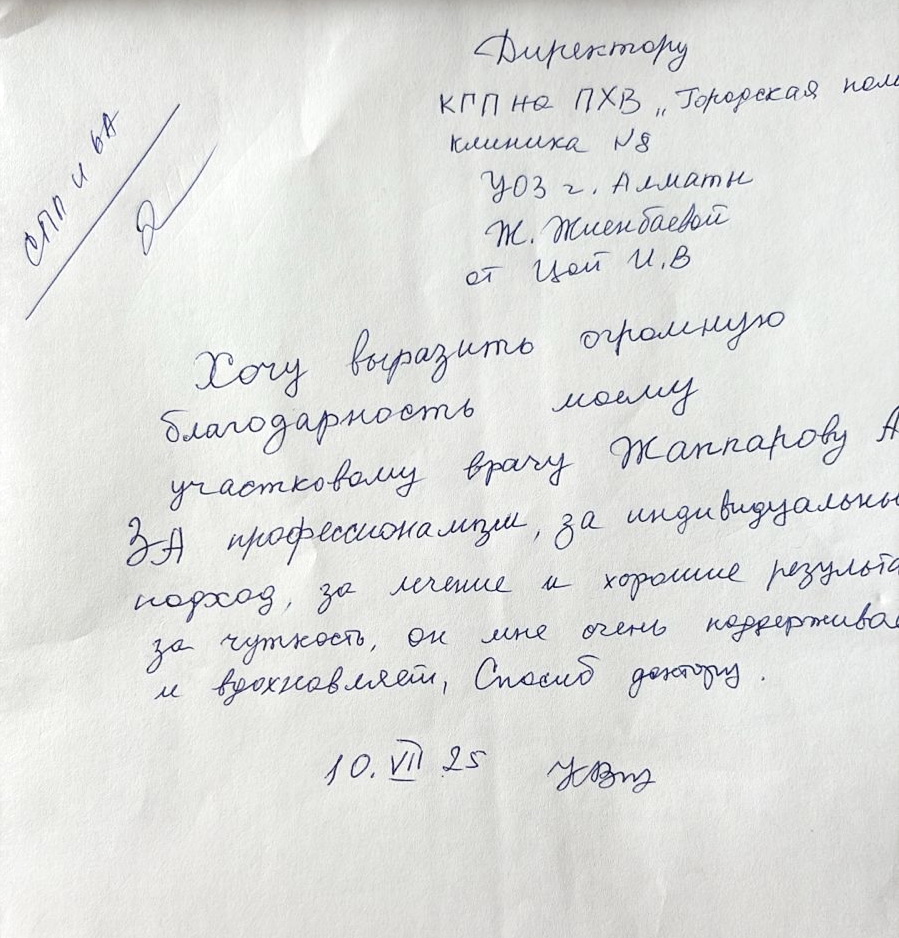 Директору
КГП на ПХВ „Городская поли
клиника №8
УОЗ г. Алматы
Ж. Жиенбаевой
от Цой И.В
СПП и ВА
Хочу выразить огромную
благодарность моему
участковому врачу Жаппарову А
ЗА профессионализм, за индивидуальны
подход, за лечение и хорошие результа
за чуткость, он мне очень поддержива
и вдохновляет, Спасиб доктору.
10. VII 25